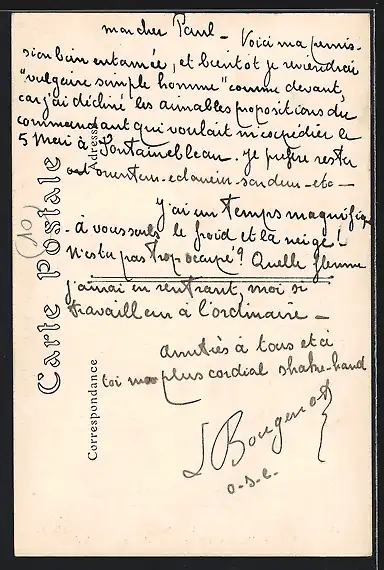 mon cher Paul – Voici ma permis-
sion bien entamée, et bientôt je reviendrai
"vulgaire simple homme" comme devant,
car j'ai décliné les aimables propositions du
commandant qui voulait m'expédier le
5 Mai à Fontainebleau. Je préfère rester
– etc –
J'ai un temps magnifiq
– à vous seuls le froid et la neige!
N'es tu pas trop occupé? Quelle flemme
j'aurai en rentrant, moi si
travailleur à l'ordinaire –
amitiés à tous et à
toi mon plus cordial shake-hand
L Bougenot
Carte Postale
Adresse
Correspondance
(10)